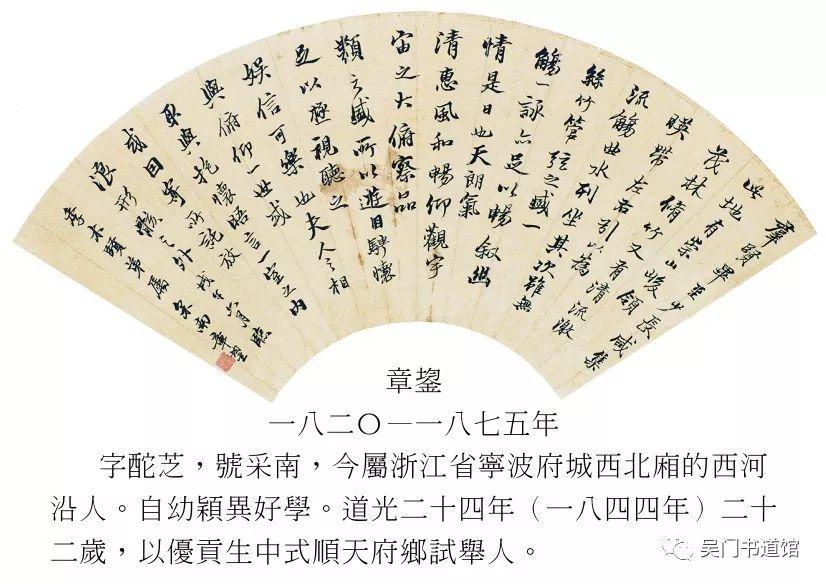 羣賢畢至少長咸集
此地有崇山峻領
茂林脩竹又有清流激
暎帶左右引以為
流觴曲水列坐其次雖無
絲竹管弦之盛一
觴一詠亦足以暢敘幽
情是日也天朗氣
清惠風和暢仰觀宇
宙之大俯察品
類之盛所以遊目騁懷
足以極視聽之
娛信可樂也夫人之相
與俯仰一世或
取與抱懷晤言一室之內
或回寄所託放
浪形骸之外 戊午六月臨
季木頤弟屬 采南章鋆
章鋆
一八二〇－一八七五年
字酡芝，號采南，今屬浙江省寧波府城西北廂的西河
沿人。自幼穎異好學。道光二十四年（一八四四年）二十
二歲，以優貢生中式順天府鄉試舉人。
吴门书道馆